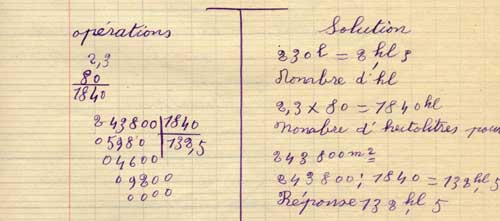 opérations
2,3
80
1840
243800 | 1840
05980 | 132,5
04600
09200
0000
Solution
230l = 2hl 3
Nombre d'hl
2,3 x 80 = 1840hl
Nombre d'hectolitres pour
243800m2
243800 : 1840 = 132hl,5
Réponse 132hl,5